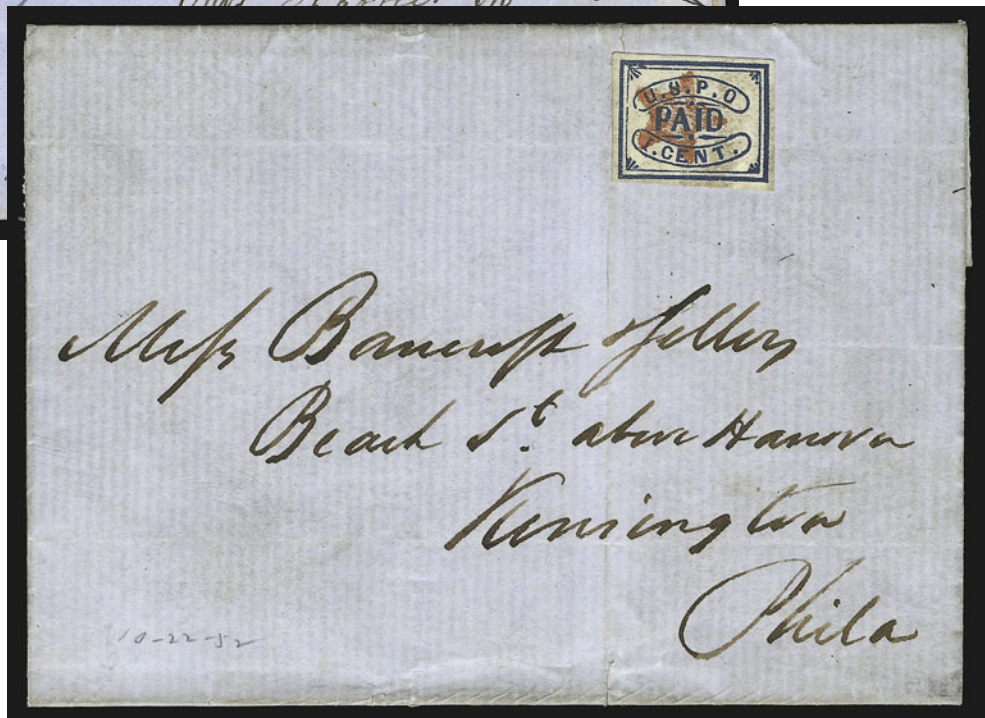 U.S.P.O
PAID
1. CENT.
Mess Bancroft & Sellers
Beach St. above Hanover
Kensington
Phila
10-22-52